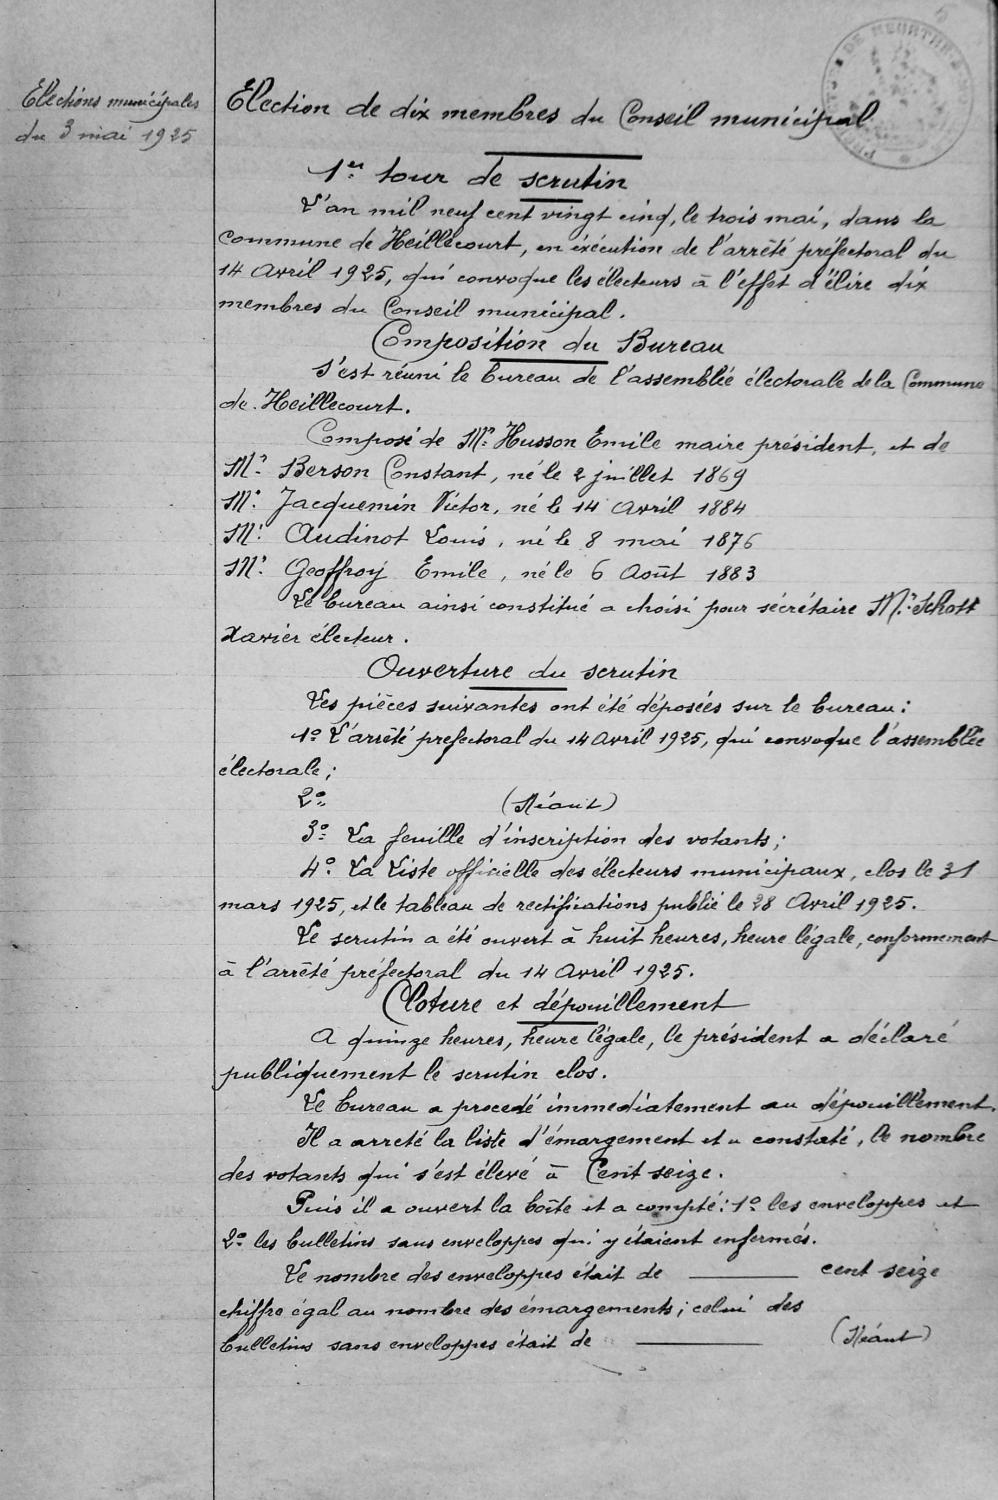 Elections municipales
du 3 mai 1925
Election de dix membres du Conseil municipal
1er tour de scrutin
L'an mil neuf cent vingt cinq, le trois mai, dans la
commune de Heillecourt, en éxécution de l'arrêté préfectoral du
14 Avril 1925, qui convoque les électeurs à l'effet d'élire dix
membres du Conseil municipal.
Composition du Bureau
S'est réuni le bureau de l'assemblée électorale de la Commune
de Heillecourt.
Composé de Mr. Husson Emile maire président, et de
Mr. Berson Constant, né le 2 juillet 1869
Mr. Jacquemin Victor, né le 14 Avril 1884
Mr. Audinot Louis, né le 8 mai 1876
Mr. Geoffroy Emile, né le 6 Août 1883
Le bureau ainsi constitué a choisi pour sécrétaire Mr. Schott
Xavier électeur.
Ouverture du scrutin
Les pièces suivantes ont été déposées sur le bureau:
1º L'arrêté prefectoral du 14 Avril 1925, qui convoque l'assemblée
électorale;
2º (Néant)
3º La feuille d'inscription des votants;
4º La Liste officielle des électeurs municipaux, clos le 31
mars 1925, et le tableau de rectifications publié le 28 Avril 1925.
Le scrutin a été ouvert à huit heures, heure légale, conformement
à l'arrêté préfectoral du 14 Avril 1925.
Cloture et dépouillement
A quinze heures, heure légale, le président a déclaré
publiquement le scrutin clos.
Le bureau a procedé immediatement au dépouillement.
Il a arreté la liste d'émargement et a constaté, le nombre
des votants qui s'est élevé à Cent seize.
Puis il a ouvert la boîte et a compté: 1º les enveloppes et
2º les bulletins sans enveloppes qui y étaient enfermés.
Le nombre des enveloppes était de cent seize
chiffre égal au nombre des émargements; celui des
bulletins sans enveloppes était de (Néant)